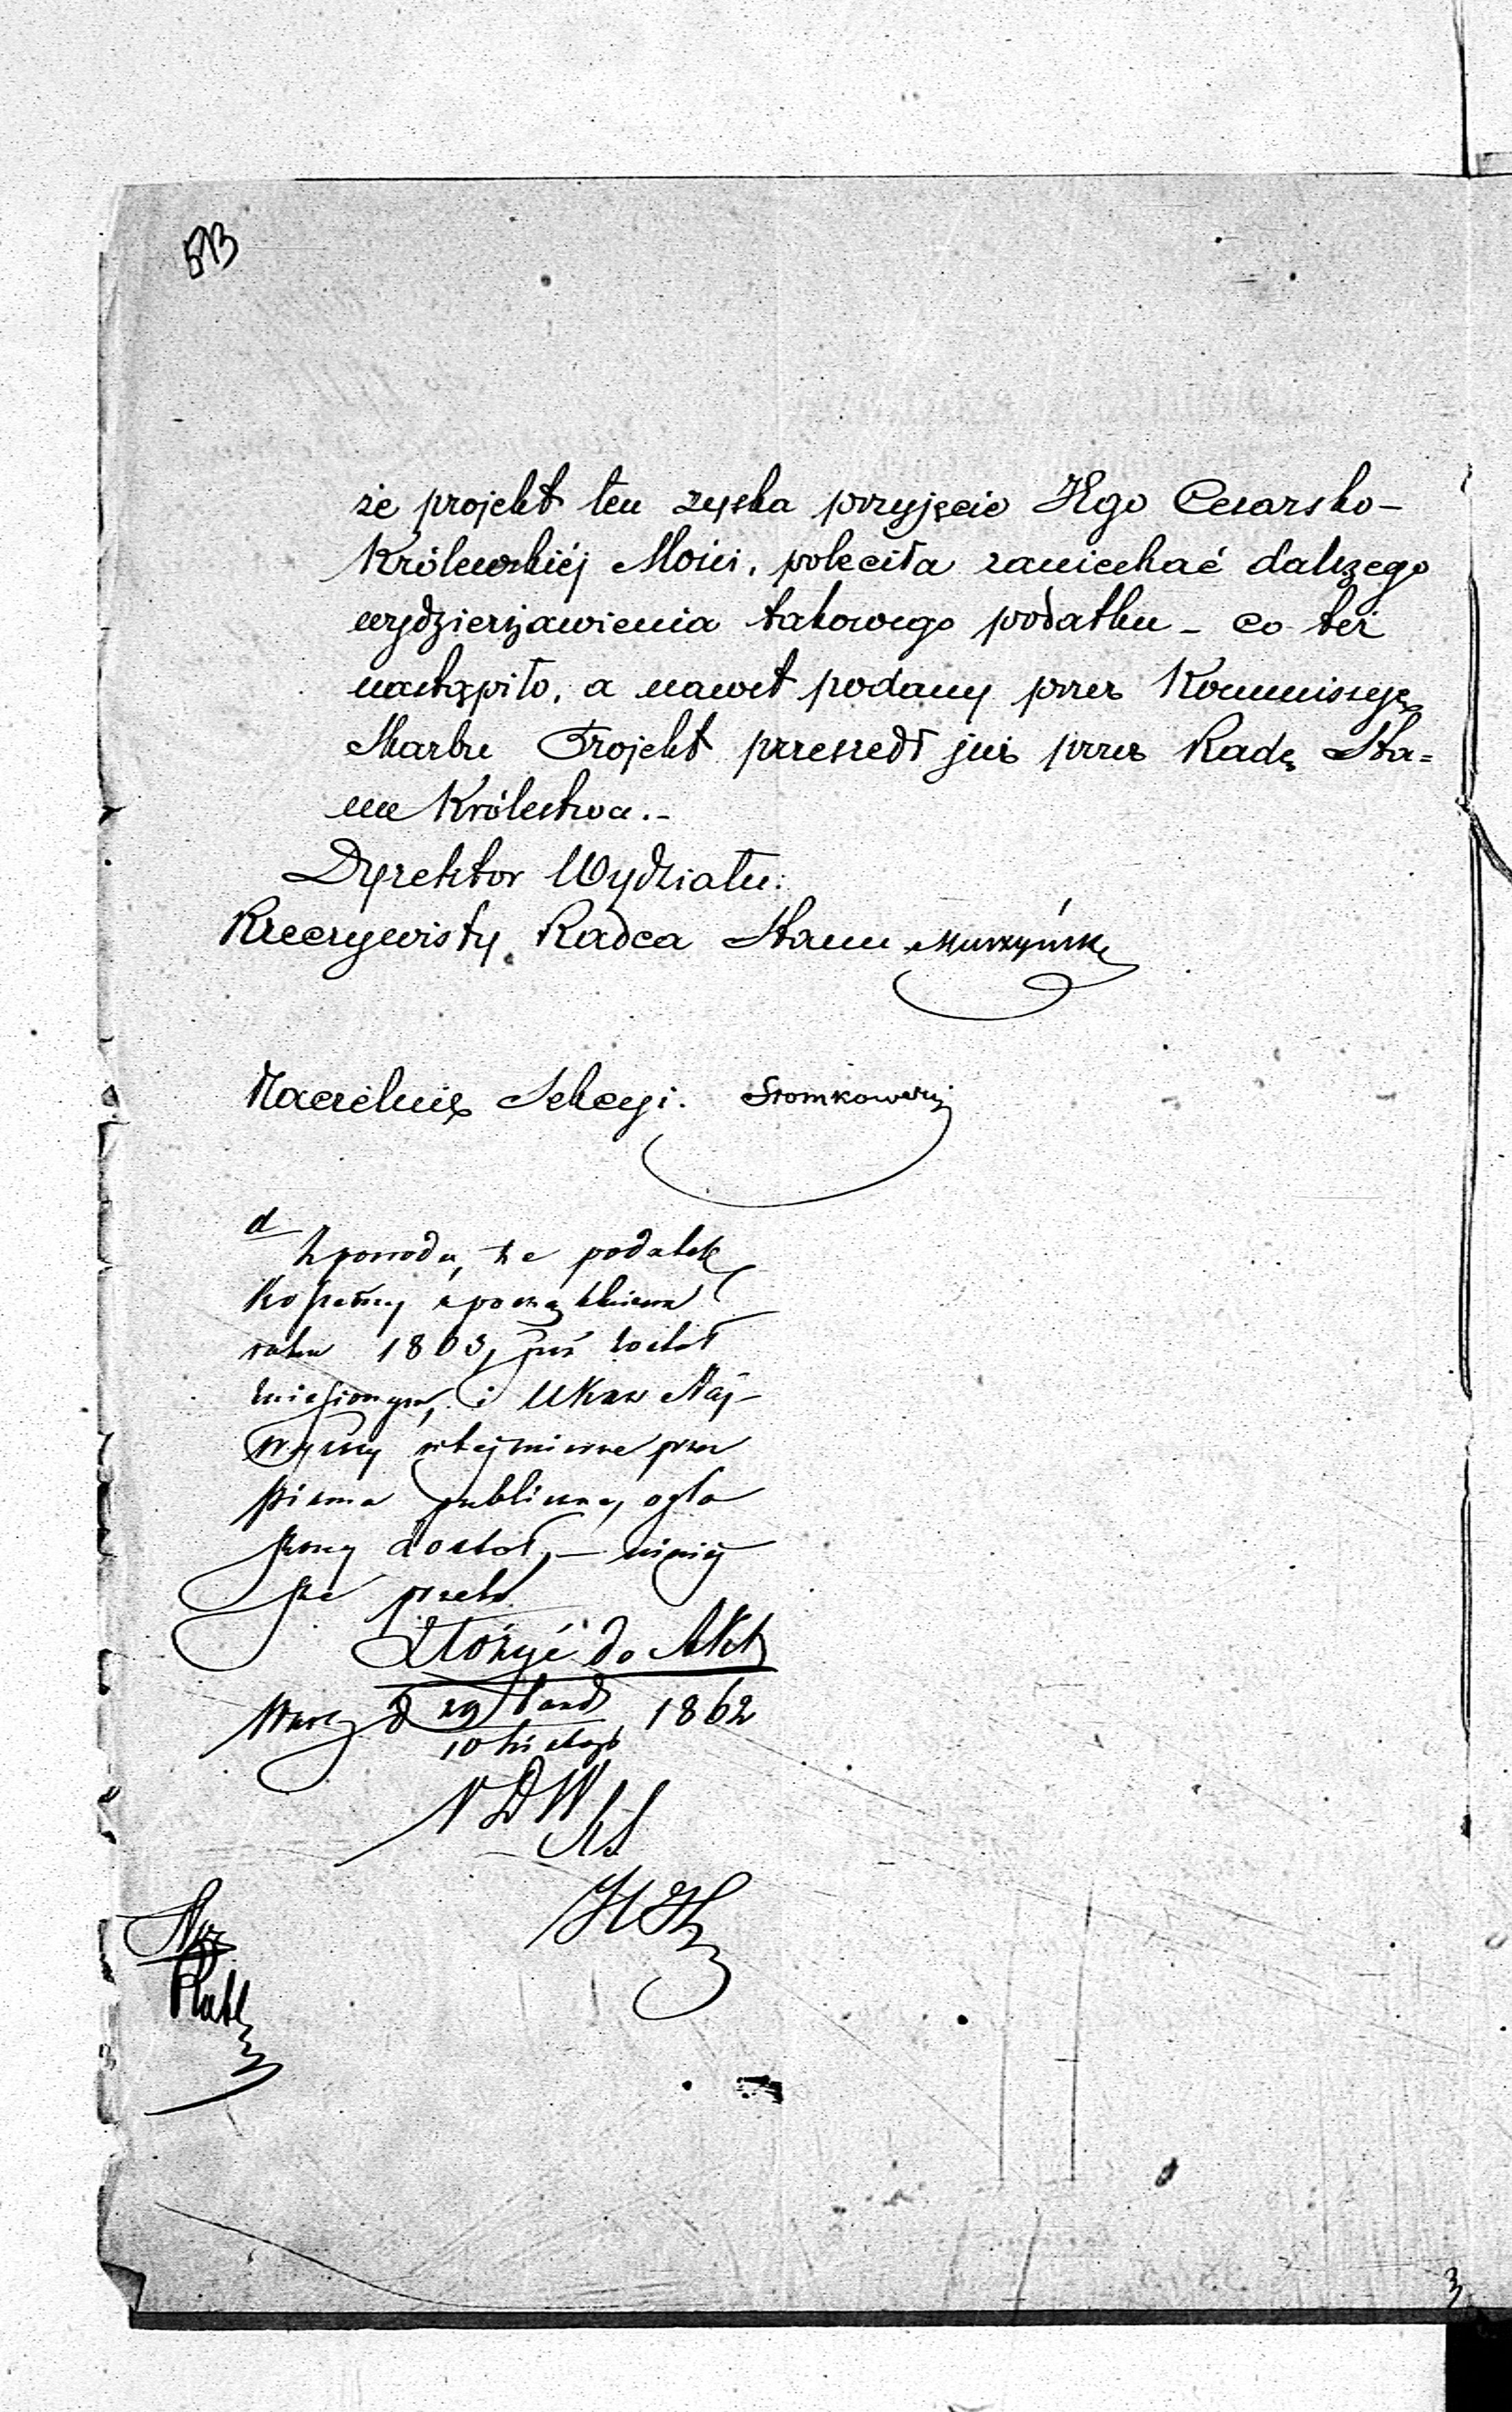 że projekt ten zyska przyjęcie JEgo Cesarsko-
Królewskiéj Mości, poleciła zaniechać dalszego
wydzierżawienia takowego podatku – co też
nastąpiło, a nawet podany przez Kommissyę
Skarbu Projekt przeszedł już przez Radę Sta=
nu Królestwa.-
Dyrektor Wydziału:
Rzeczywisty Radca Stanu Muszyński
Naczelnik Sekcyi.
d
Z powodu, że podatek
Koszerny z początkiem
roku 1863, już został
zniesionym, i Ukaz Naj-
wyższy w tej mierze przez
pisma publiczne, ogło
szony został, – niniej
sze przeto
Złożyć do Akt
Warsz d 29 Paźd 1862
10 Listop